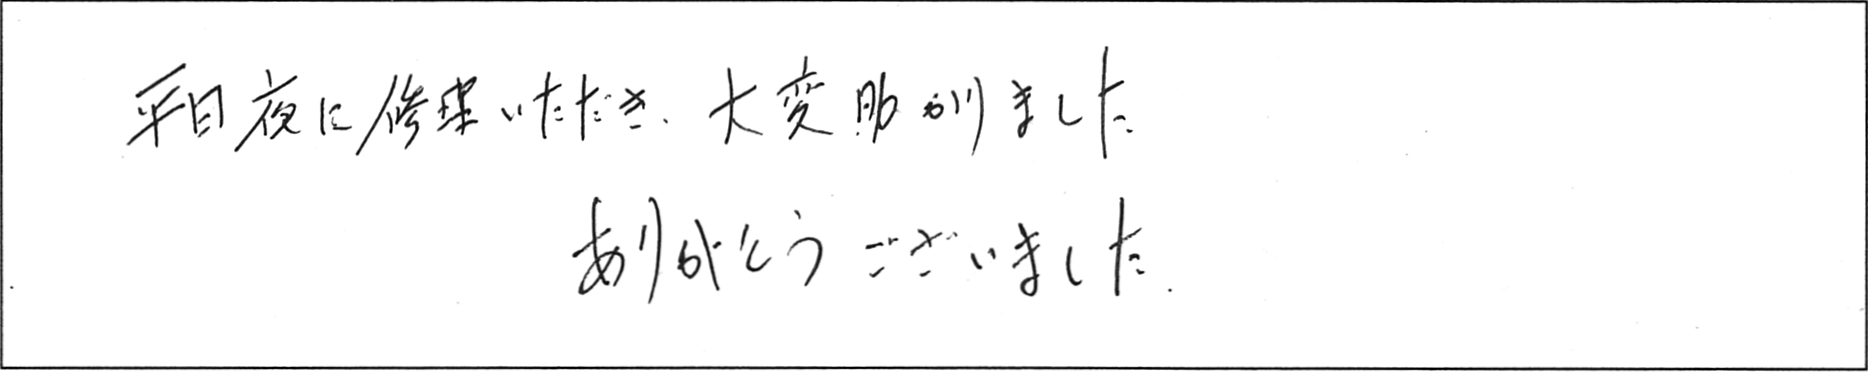 平日夜に修理いただき、大変助かりました
ありがとうございました.